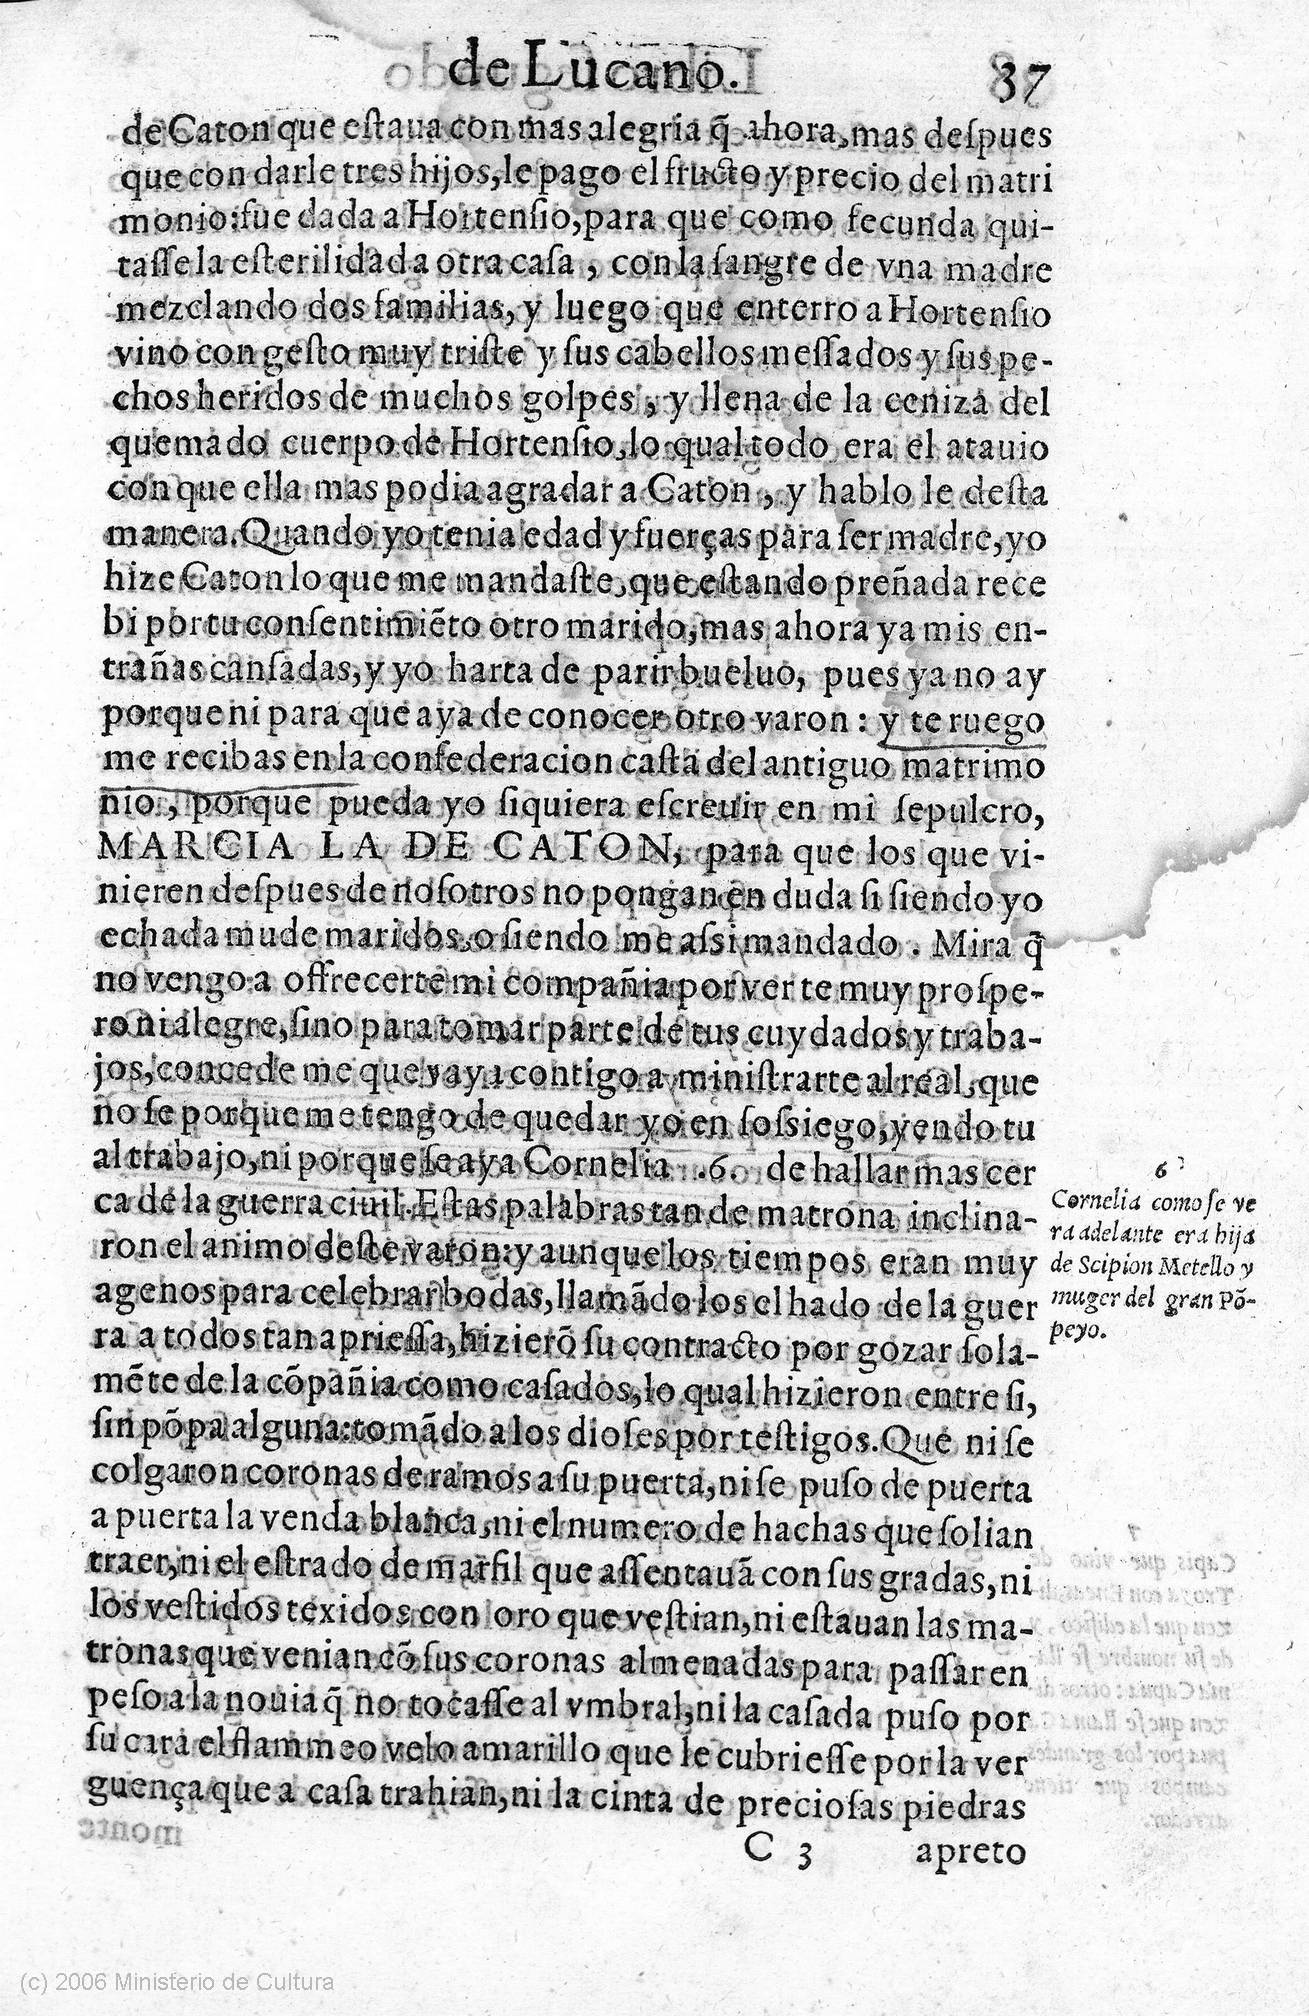 de Lucano. 37
de Caton que eſtaua con mas alegria q̃ ahora, mas deſpues
que con darle tres hijos, le pago el fructo y precio del matri
monio: fue dada a Hortenſio, para que como fecunda qui-
taſſe la eſterilidad a otra caſa, con la ſangre de vna madre
mezclando dos familias, y luego que enterro a Hortenſio
vino con geſto muy triſte y ſus cabellos meſſados y ſus pe-
chos heridos de muchos golpes, y llena de la ceniza del
quemado cuerpo de Hortenſio, lo qual todo era el atauio
con que ella mas podia agradar a Caton, y hablo le deſta
manera. Quando yo tenia edad y fuerças para ſer madre, yo
hize Caton lo que me mandaſte, que eſtando preñada rece
bi por tu conſentimiẽto otro marido, mas ahora ya mis en-
trañas canſadas, y yo harta de parir bueluo, pues ya no ay
porque ni para que aya de conocer otro varon: y te ruego
me recibas en la confederacion caſta del antiguo matrimo
nio, porque pueda yo ſiquiera eſcreuir en mi ſepulcro,
MARCIA LA DE CATON, para que los que vi-
nieren deſpues de noſotros no pongan en duda ſi ſiendo yo
echada mude maridos, o ſiendo me aſsi mandado. Mira q̃
no vengo a offrecerte mi compañia por ver te muy proſpe-
ro ni alegre, ſino para tomar parte de tus cuydados y traba-
jos, concede me que vaya contigo a miniſtrarte al real, que
no ſe porque me tengo de quedar yo en ſoſsiego, yendo tu
al trabajo, ni porque ſe aya Cornelia .6. de hallar mas cer
ca de la guerra ciuil. Eſtas palabras tan de matrona inclina-
ron el animo deſte varon: y aunque los tiempos eran muy
agenos para celebrar bodas, llamãdo los el hado de la guer
ra a todos tan aprieſſa, hizierõ ſu contracto por gozar ſola-
mẽte de la cõpañia como caſados, lo qual hizieron entre ſi,
ſin põpa alguna: tomãdo a los dioſes por teſtigos. Que ni ſe
colgaron coronas de ramos a ſu puerta, ni ſe puſo de puerta
a puerta la venda blanca, ni el numero de hachas que ſolian
traer, ni el eſtrado de marfil que aſſentauã con ſus gradas, ni
los veſtidos texidos con oro que veſtian, ni eſtauan las ma-
tronas que venian cõ ſus coronas almenadas para paſſar en
peſo a la nouia q̃ no tocaſſe al vmbral, ni la caſada puſo por
ſu cara el flammeo velo amarillo que le cubrieſſe por la ver
guença que a caſa trahian, ni la cinta de precioſas piedras
C 3 apreto
6
Cornelia como ſe ve
ra adelante era hija
de Scipion Metello y
muger del gran Põ-
peyo.
(c) 2006 Ministerio de Cultura